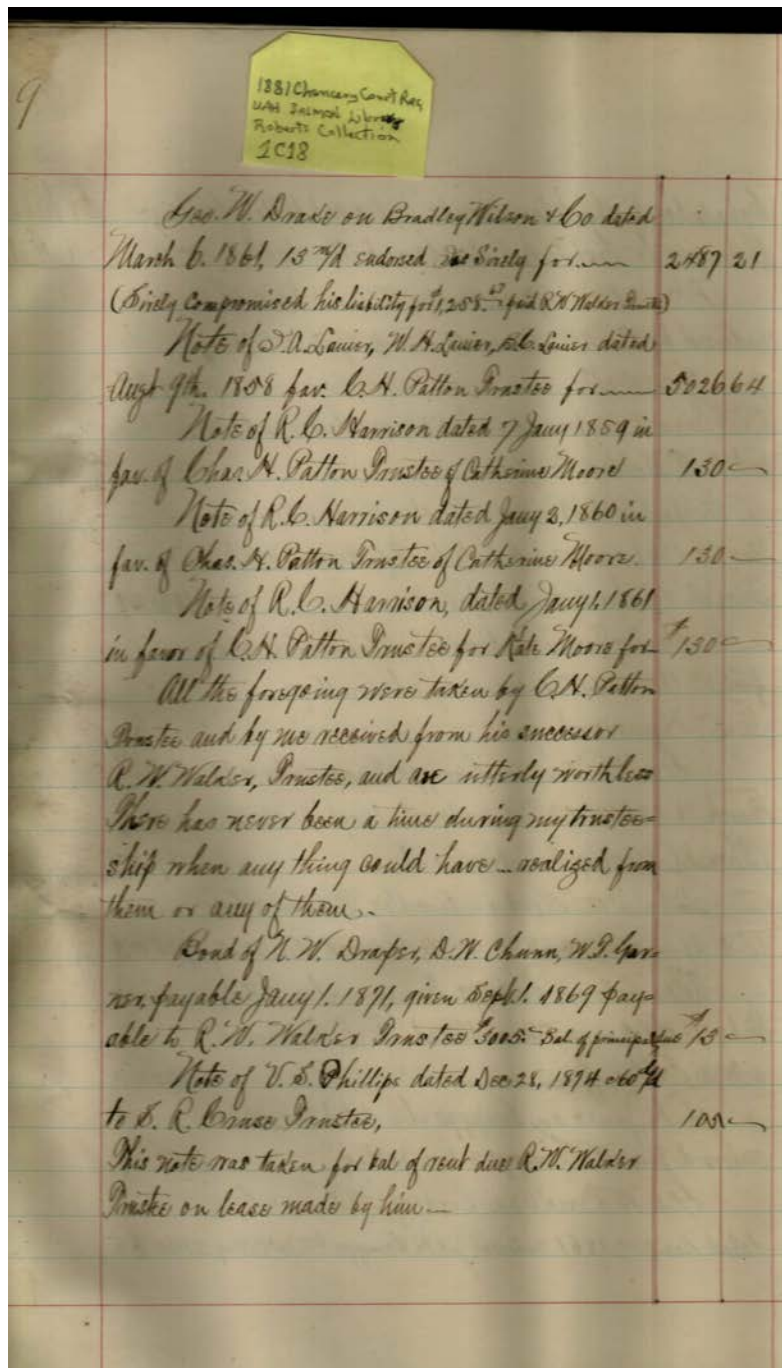 9
1881 Chancery Court Rec,
UAH Salmon Library
Roberts Collection
1C18
Geo. W. Drake on Bradley Wilson & Co dated
March 6. 1861, 13 m/d endorsed Sively for 2487 21
(Sively compromised his liability for $1,258. paid R W Walker Trustee)
Note of I. A. Lanier, W. H. Lanier, B. C. Lanier dated
Augt 9th. 1858 fav. C. H. Patton Trustee for 5026 64
Note of R. C. Harrison dated 7 Jany 1859 in
fav. of Chas. H. Patton Trustee of Catherine Moore 130 —
Note of R. C. Harrison dated Jany 2, 1860 in
fav. of Chas. H. Patton Trustee of Catherine Moore. 130 —
Note of R. C. Harrison, dated Jany 1. 1861
in favor of C. H. Patton Trustee for Kate Moore for $130 —
All the foregoing were taken by C. H. Patton
Trustee and by me received from his successor
R. W. Walker, Trustee, and are utterly worthless
There has never been a time during my trustee=
ship when any thing could have realized from
them or any of them.
Bond of N. W. Draper, D. W. Chunn, W. P. Gar=
ner, payable Jany 1. 1871, given Sept 1. 1869 pay=
able to R. W. Walker Trustee $3005. Bal. of principal due $13 —
Note of V. S. Phillips dated Dec 28, 1874 @ 60 d/d
to S. R. Cruse Trustee,
This note was taken for bal of rent due R. W. Walker
Trustee on lease made by him —